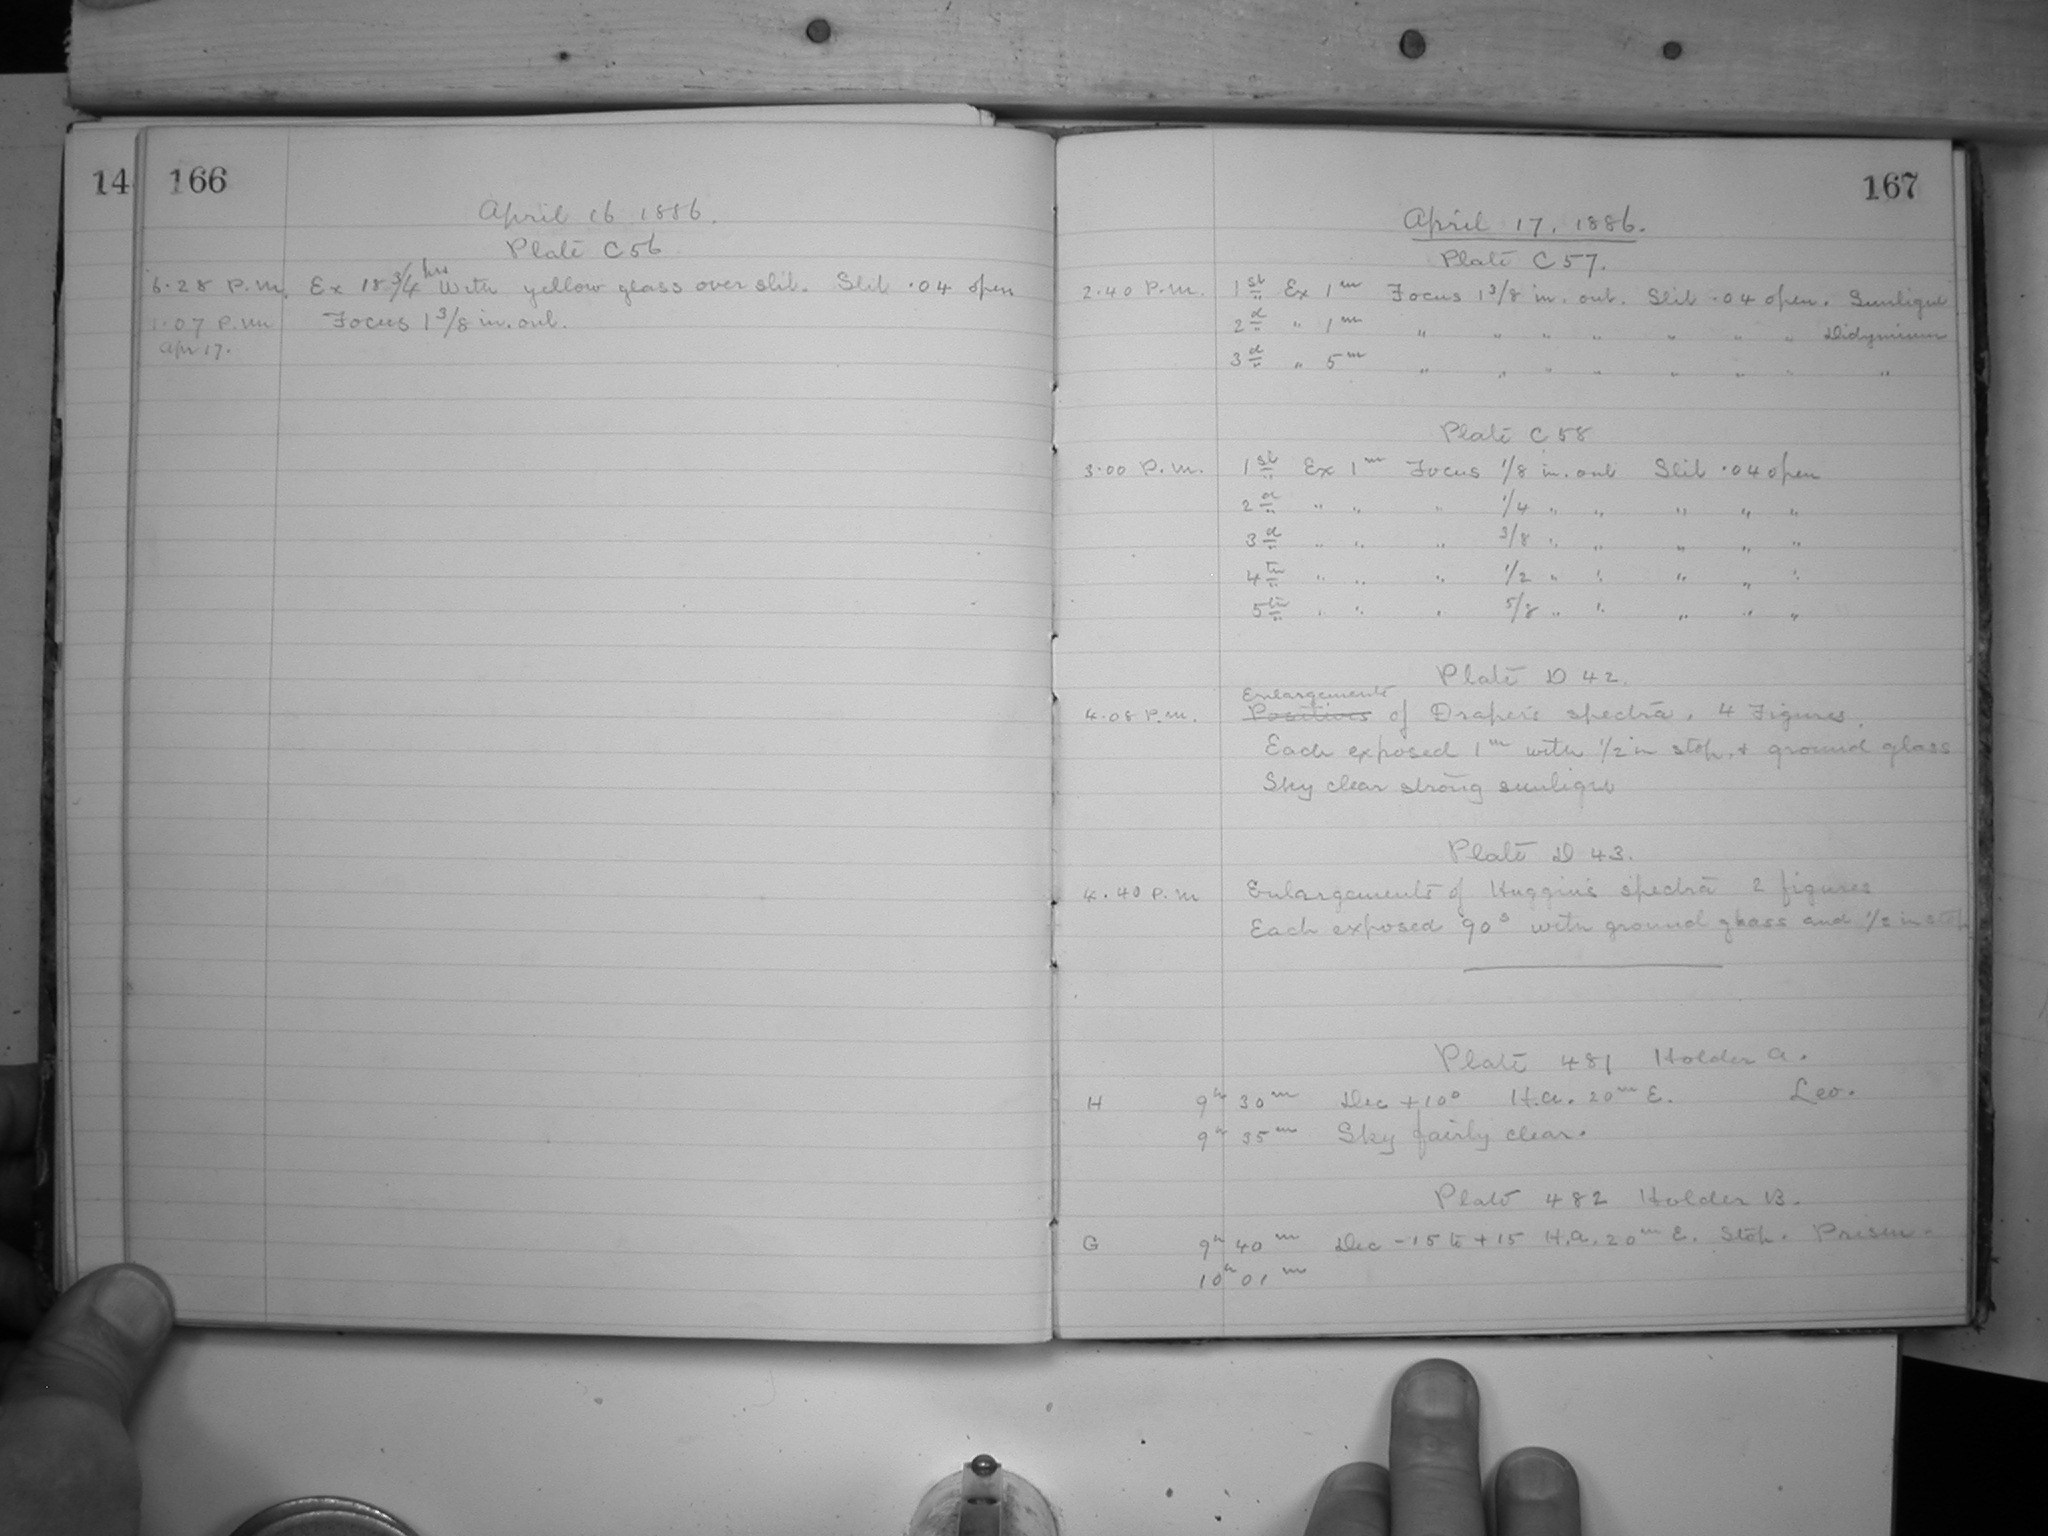 14
166
April 16 1886.
Plate C 56
6.28 P.M. Ex 18 3/4 hrs With yellow glass over slit. Slit .04 open
1.07 P.M. Focus 1 3/8 in. out.
Apr 17.
167
April 17, 1886.
Plate C 57.
2.40 P.M. 1st Ex 1m Focus 1 3/8 in. out. Slit .04 open. Sunlight
2d " 1m " " " " " " " Didymium
3d " 5m " " " " " " " "
Plate C 58
3.00 P.M. 1st Ex 1m Focus 1/8 in. out Slit .04 open
2d " " " 1/4 " " " " "
3d " " " 3/8 " " " " "
4th " " " 1/2 " " " " "
5th " " " 5/8 " " " " "
Plate D 42.
Enlargements
4.08 P.M. Positives of Draper's spectra, 4 Figures.
Each exposed 1m with 1/2 in stop. & ground glass
Sky clear strong sunlight
Plate D 43.
4.40 P.M Enlargements of Huggins spectra 2 figures
Each exposed 90s with ground glass and 1/2 in stop
Plate 481 Holder A.
H 9h 30m Dec +10° H.A. 20m E. Leo.
9h 35m Sky fairly clear.
Plate 482 Holder B.
G 9h 40m Dec -15 to +15 H.A. 20m E. Stop. Prism.
10h 01m